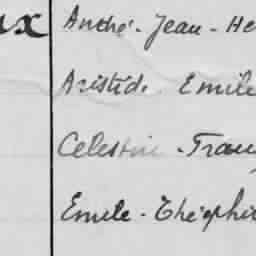 ux André-Jean-He
Aristide Emile
Célestin-Fran
Emile-Théophi